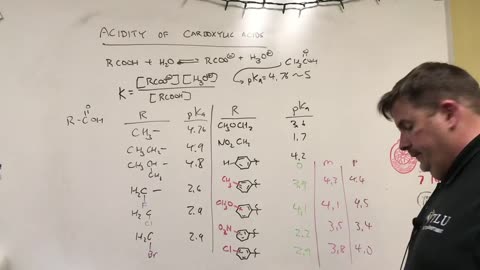 ACIDITY OF CARBOXYLIC ACIDS
RCOOH + H2O ⇌ RCOO⊖ + H3O⊕
CH3COH
O
K = [RCOO⊖][H3O⊕]
[RCOOH]
pKa = 4.76 ~ 5
O
R-C-OH
R pKa R pKa
CH3- 4.76 CH3OCH2 3.6
CH3CH2- 4.9 NO2CH2 1.7
CH3CH- 4.8 H- 4.2
CH3 O m p
H2C- 2.6 CH3- 3.9 4.3 4.4
F
H2C 2.9 CH3O- 4.1 4.1 4.5
Cl
H2C 2.9 O2N 2.2 3.5 3.4
Br
Cl- 2.9 3.8 4.0
7
TLU